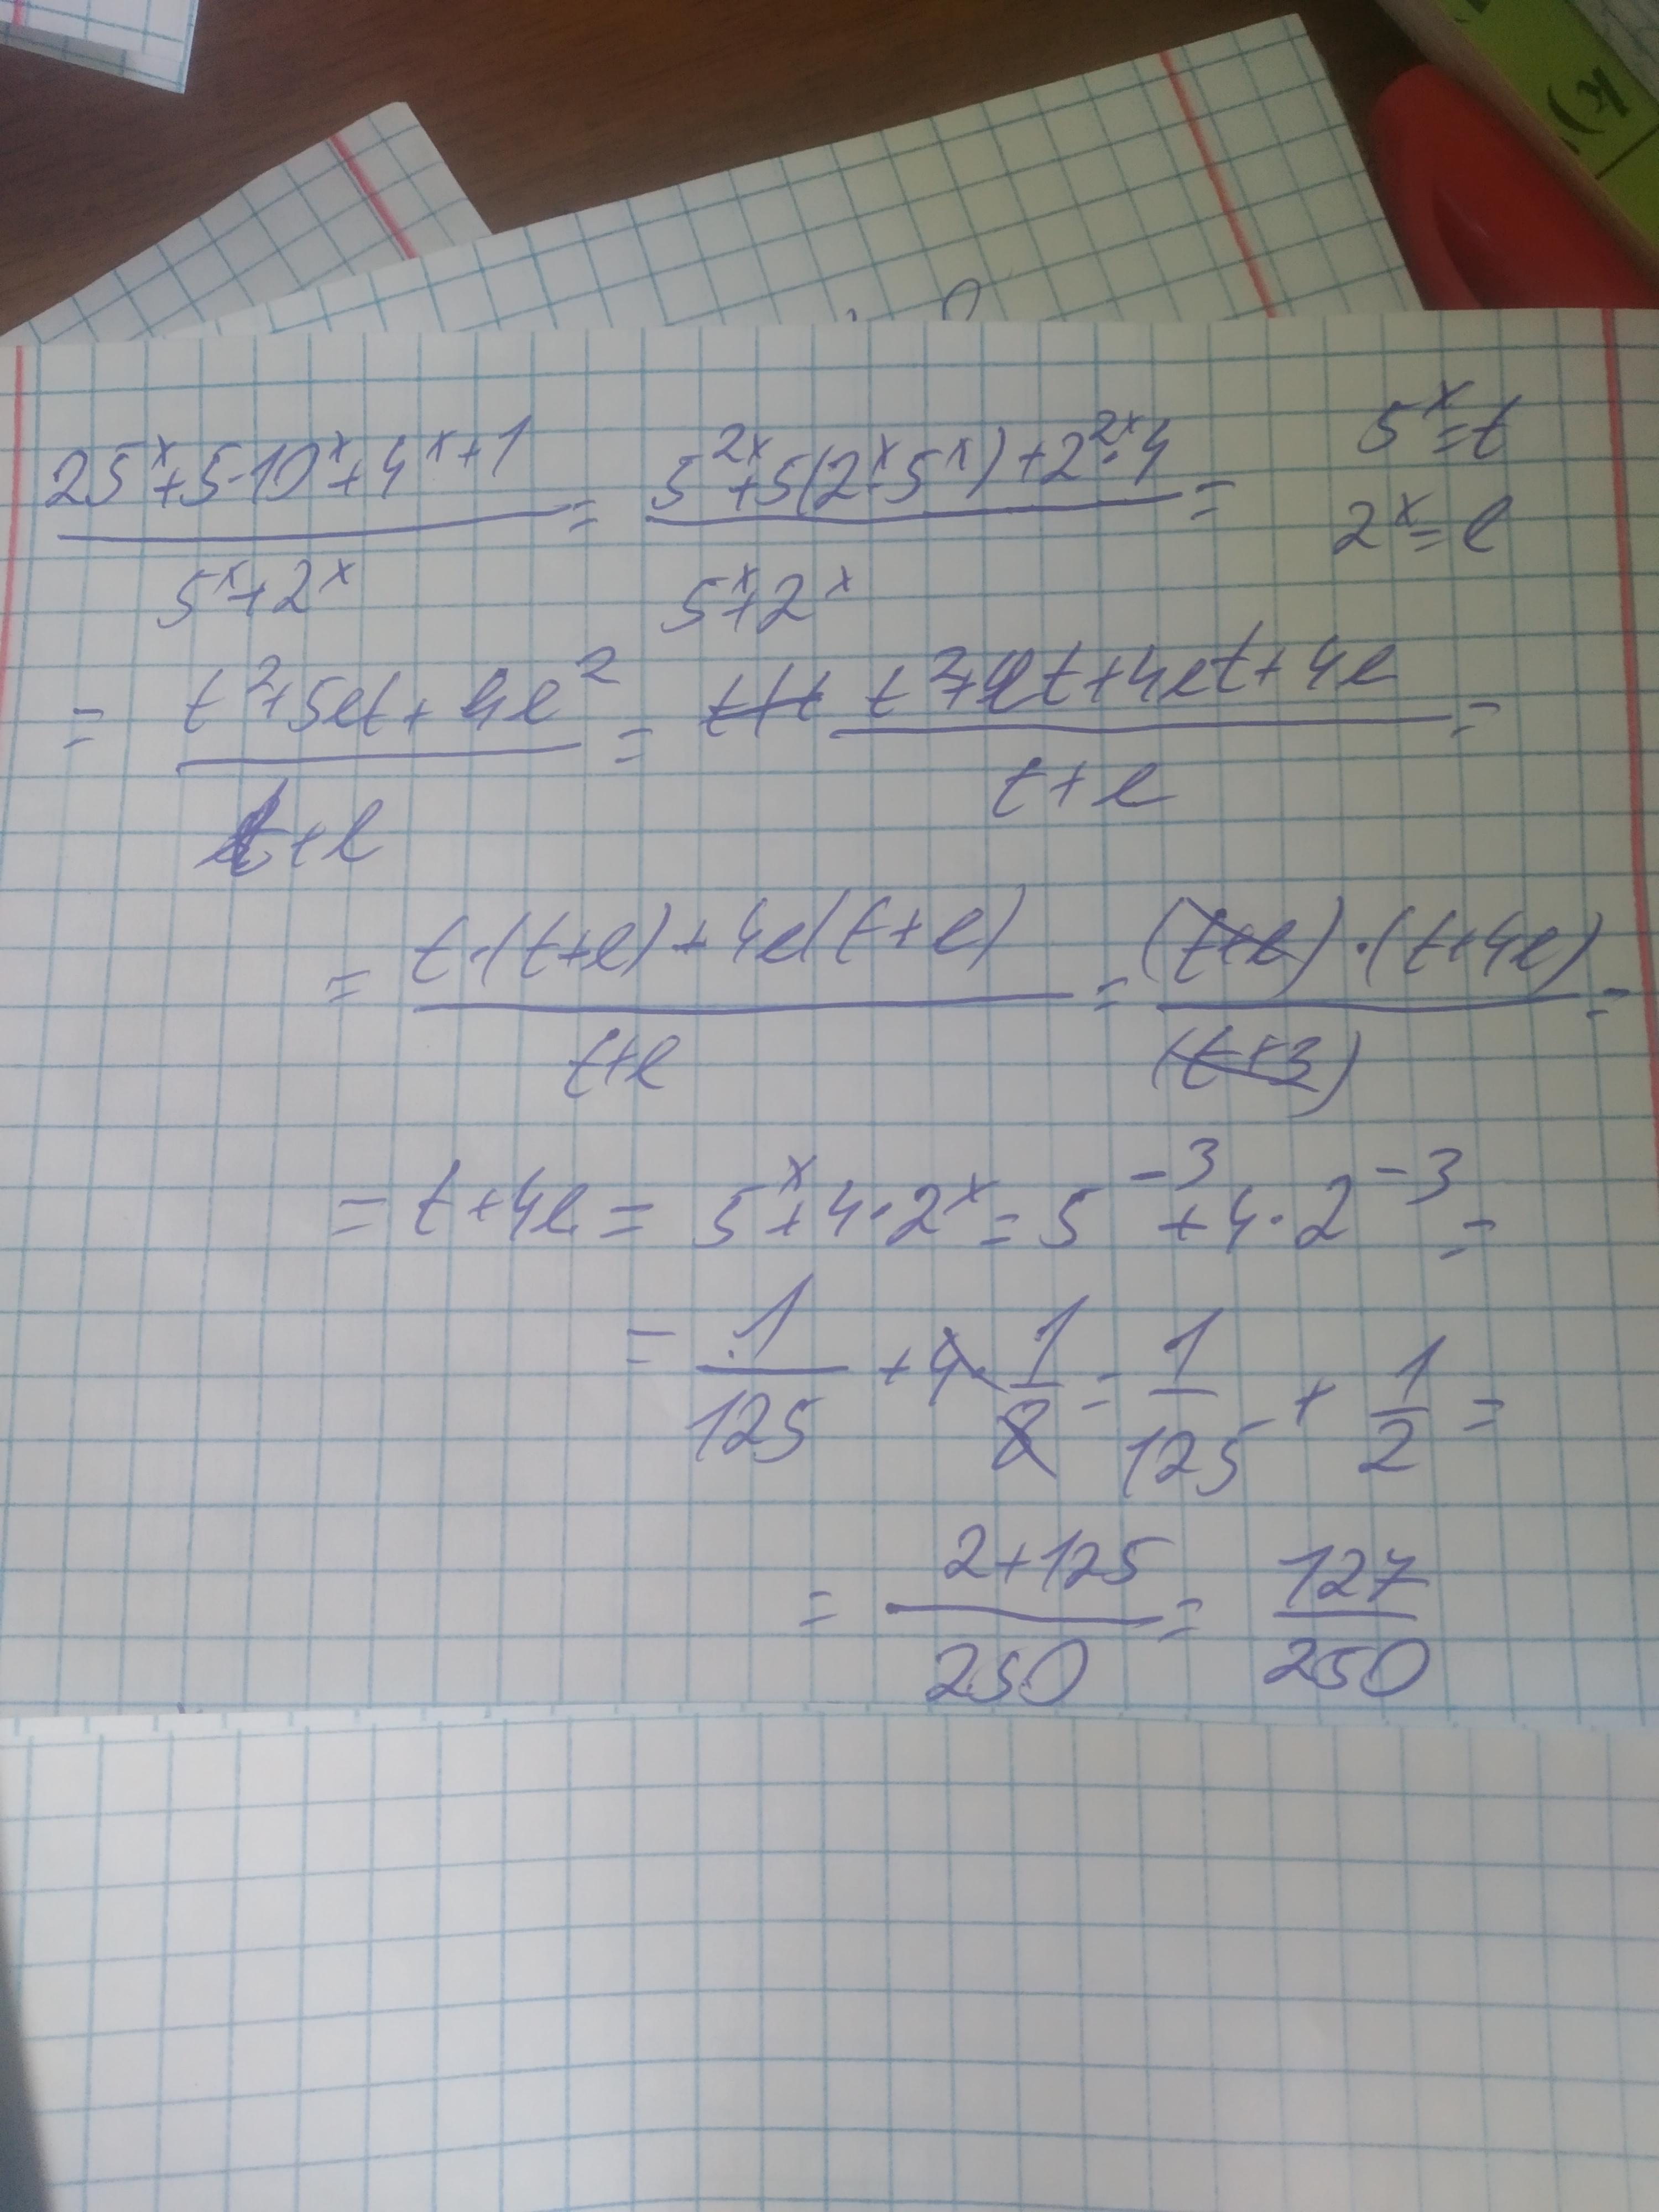 (25^x + 5·10^x + 4^(x+1)) / (5^x + 2^x) = (5^(2x) + 5(2^x·5^x) + 2^(2x)·4) / (5^x + 2^x) = 5^x = t
2^x = l
= (t² + 5lt + 4l²) / (t + l) = (t² + lt + 4lt + 4l) / (t + l) =
= (t·(t+l) + 4l(t+l)) / (t+l) = ((t+l)·(t+4l)) / (t+3) =
= t + 4l = 5^x + 4·2^x = 5^(-3) + 4·2^(-3) =
= 1/125 + 4·1/8 = 1/125 + 1/2 =
= (2+125)/250 = 127/250